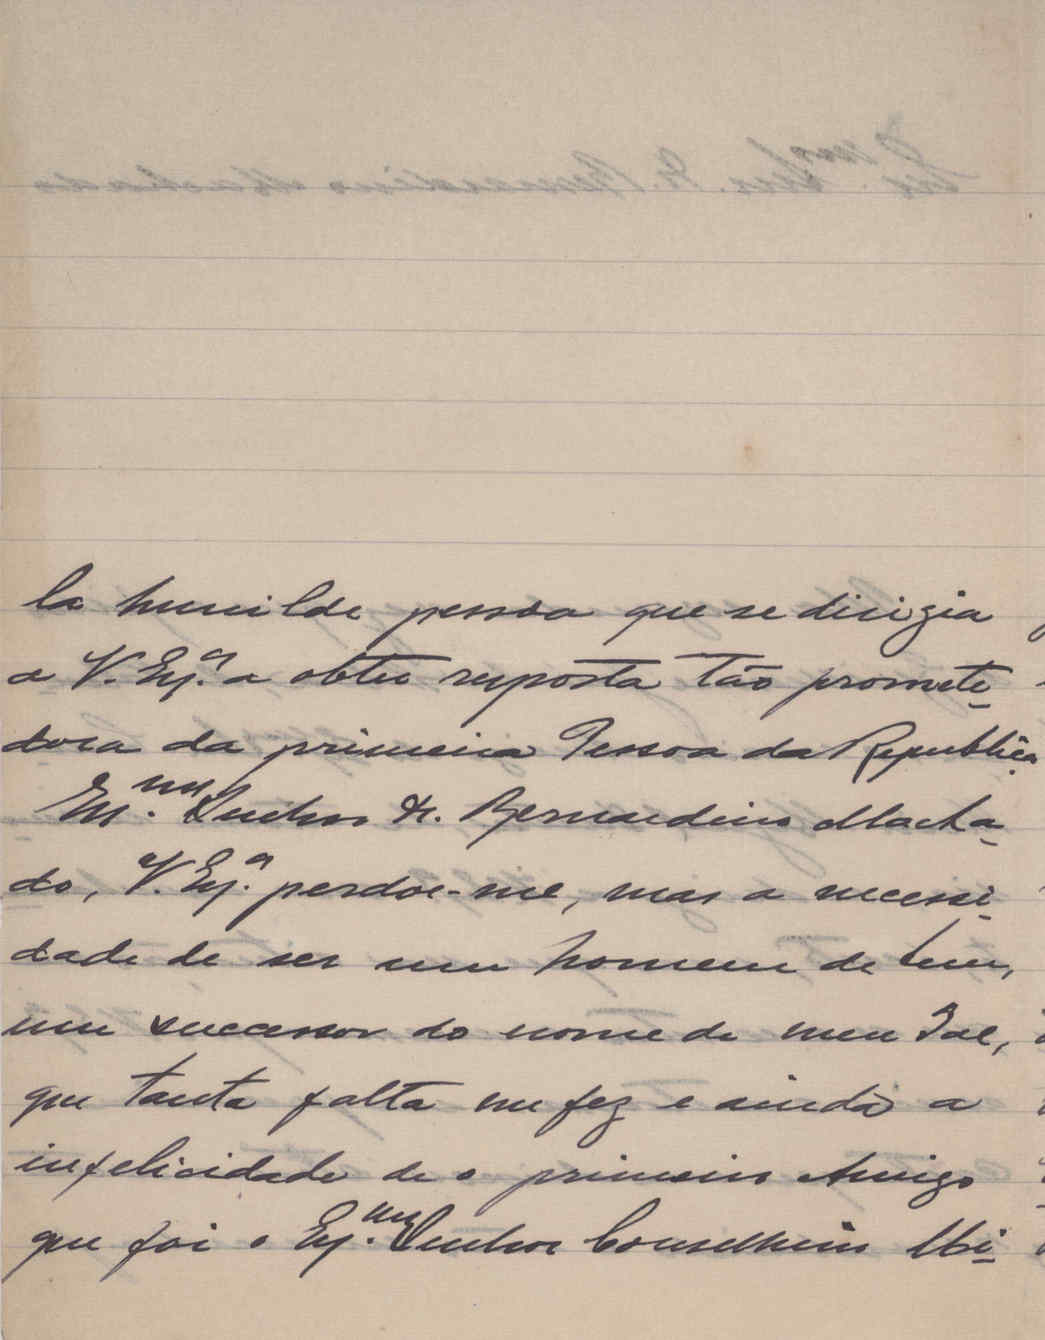 la humilde pessoa que se dirigia
a V. Exª a obter resposta tão promete-
dora da primeira Pessoa da Republica
Exmo. Senhor Dr. Bernardino Macha-
do, V. Exª perdoe-me, mas a necessi-
dade de ser um homem de bem,
um successor do nome de meu Pae,
que tanta falta me fez e ainda a
infelicidade de o primeiro Amigo
que foi o Exmo. Senhor Conselheiro